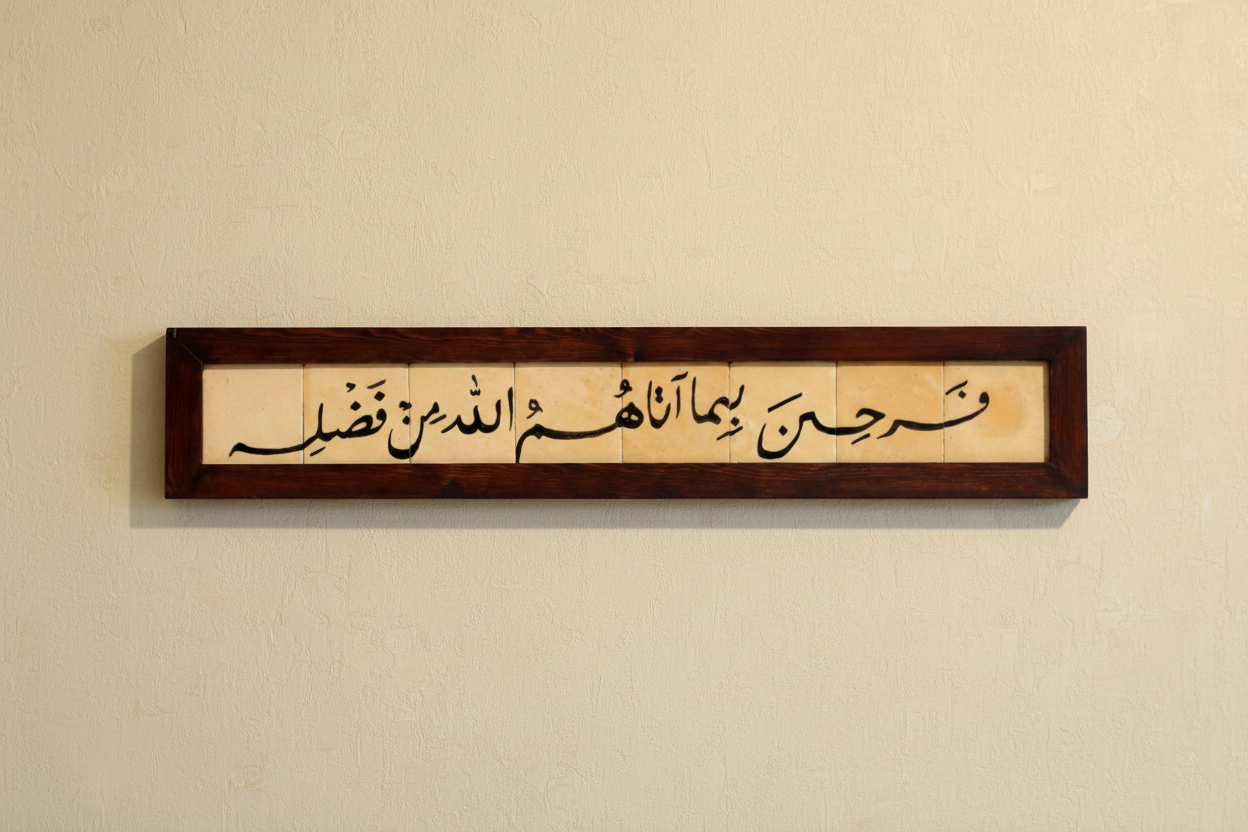 فَرحِينَ بِمِا آتاهُمُ اللّٰه مِنْ فَضْلِه